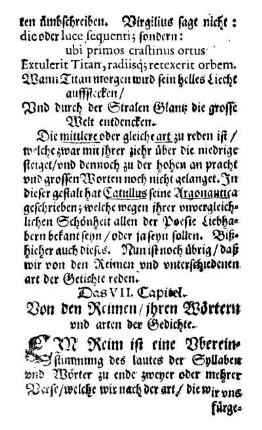 ten ümbschreiben. Virgilius sagt nicht:
die oder luce sequenti; sondern:
ubi primos crastinus ortus
Extulerit Titan, radiisq; retexerit orbem.
Wann Titan morgen wird sein helles Liecht
auffstecken/
Vnd durch der Stralen Glantz die grosse
Welt entdencken.
Die mittlere oder gleiche art zu reden ist/
welche zwar mit jhrer ziehr über die niedrige
steiget/ vnd dennoch zu der hohen an pracht
vnd grossen Worten noch nicht gelanget. In
dieser gestalt hat Catullus seine Argonautica
geschrieben; welche wegen jhrer vnvergleich-
lichen Schönheit allen der Poesie Liebha-
bern bekant seyn/ oder ja seyn sollen. Biß-
hieher auch dieses. Nun ist noch übrig/ daß
wir von den Reimen vnd vnterschiedenen
art der Getichte reden.
Das VII. Capitel.
Von den Reimen/ jhren Wörtern
vnd arten der Gedichte.
EIn Reim ist eine Vberein-
stimmung des lautes der Syllaben
vnd Wörter zu ende zweyer oder mehrer
Verse/ welche wir nach der art/ die wir vns
fürge-